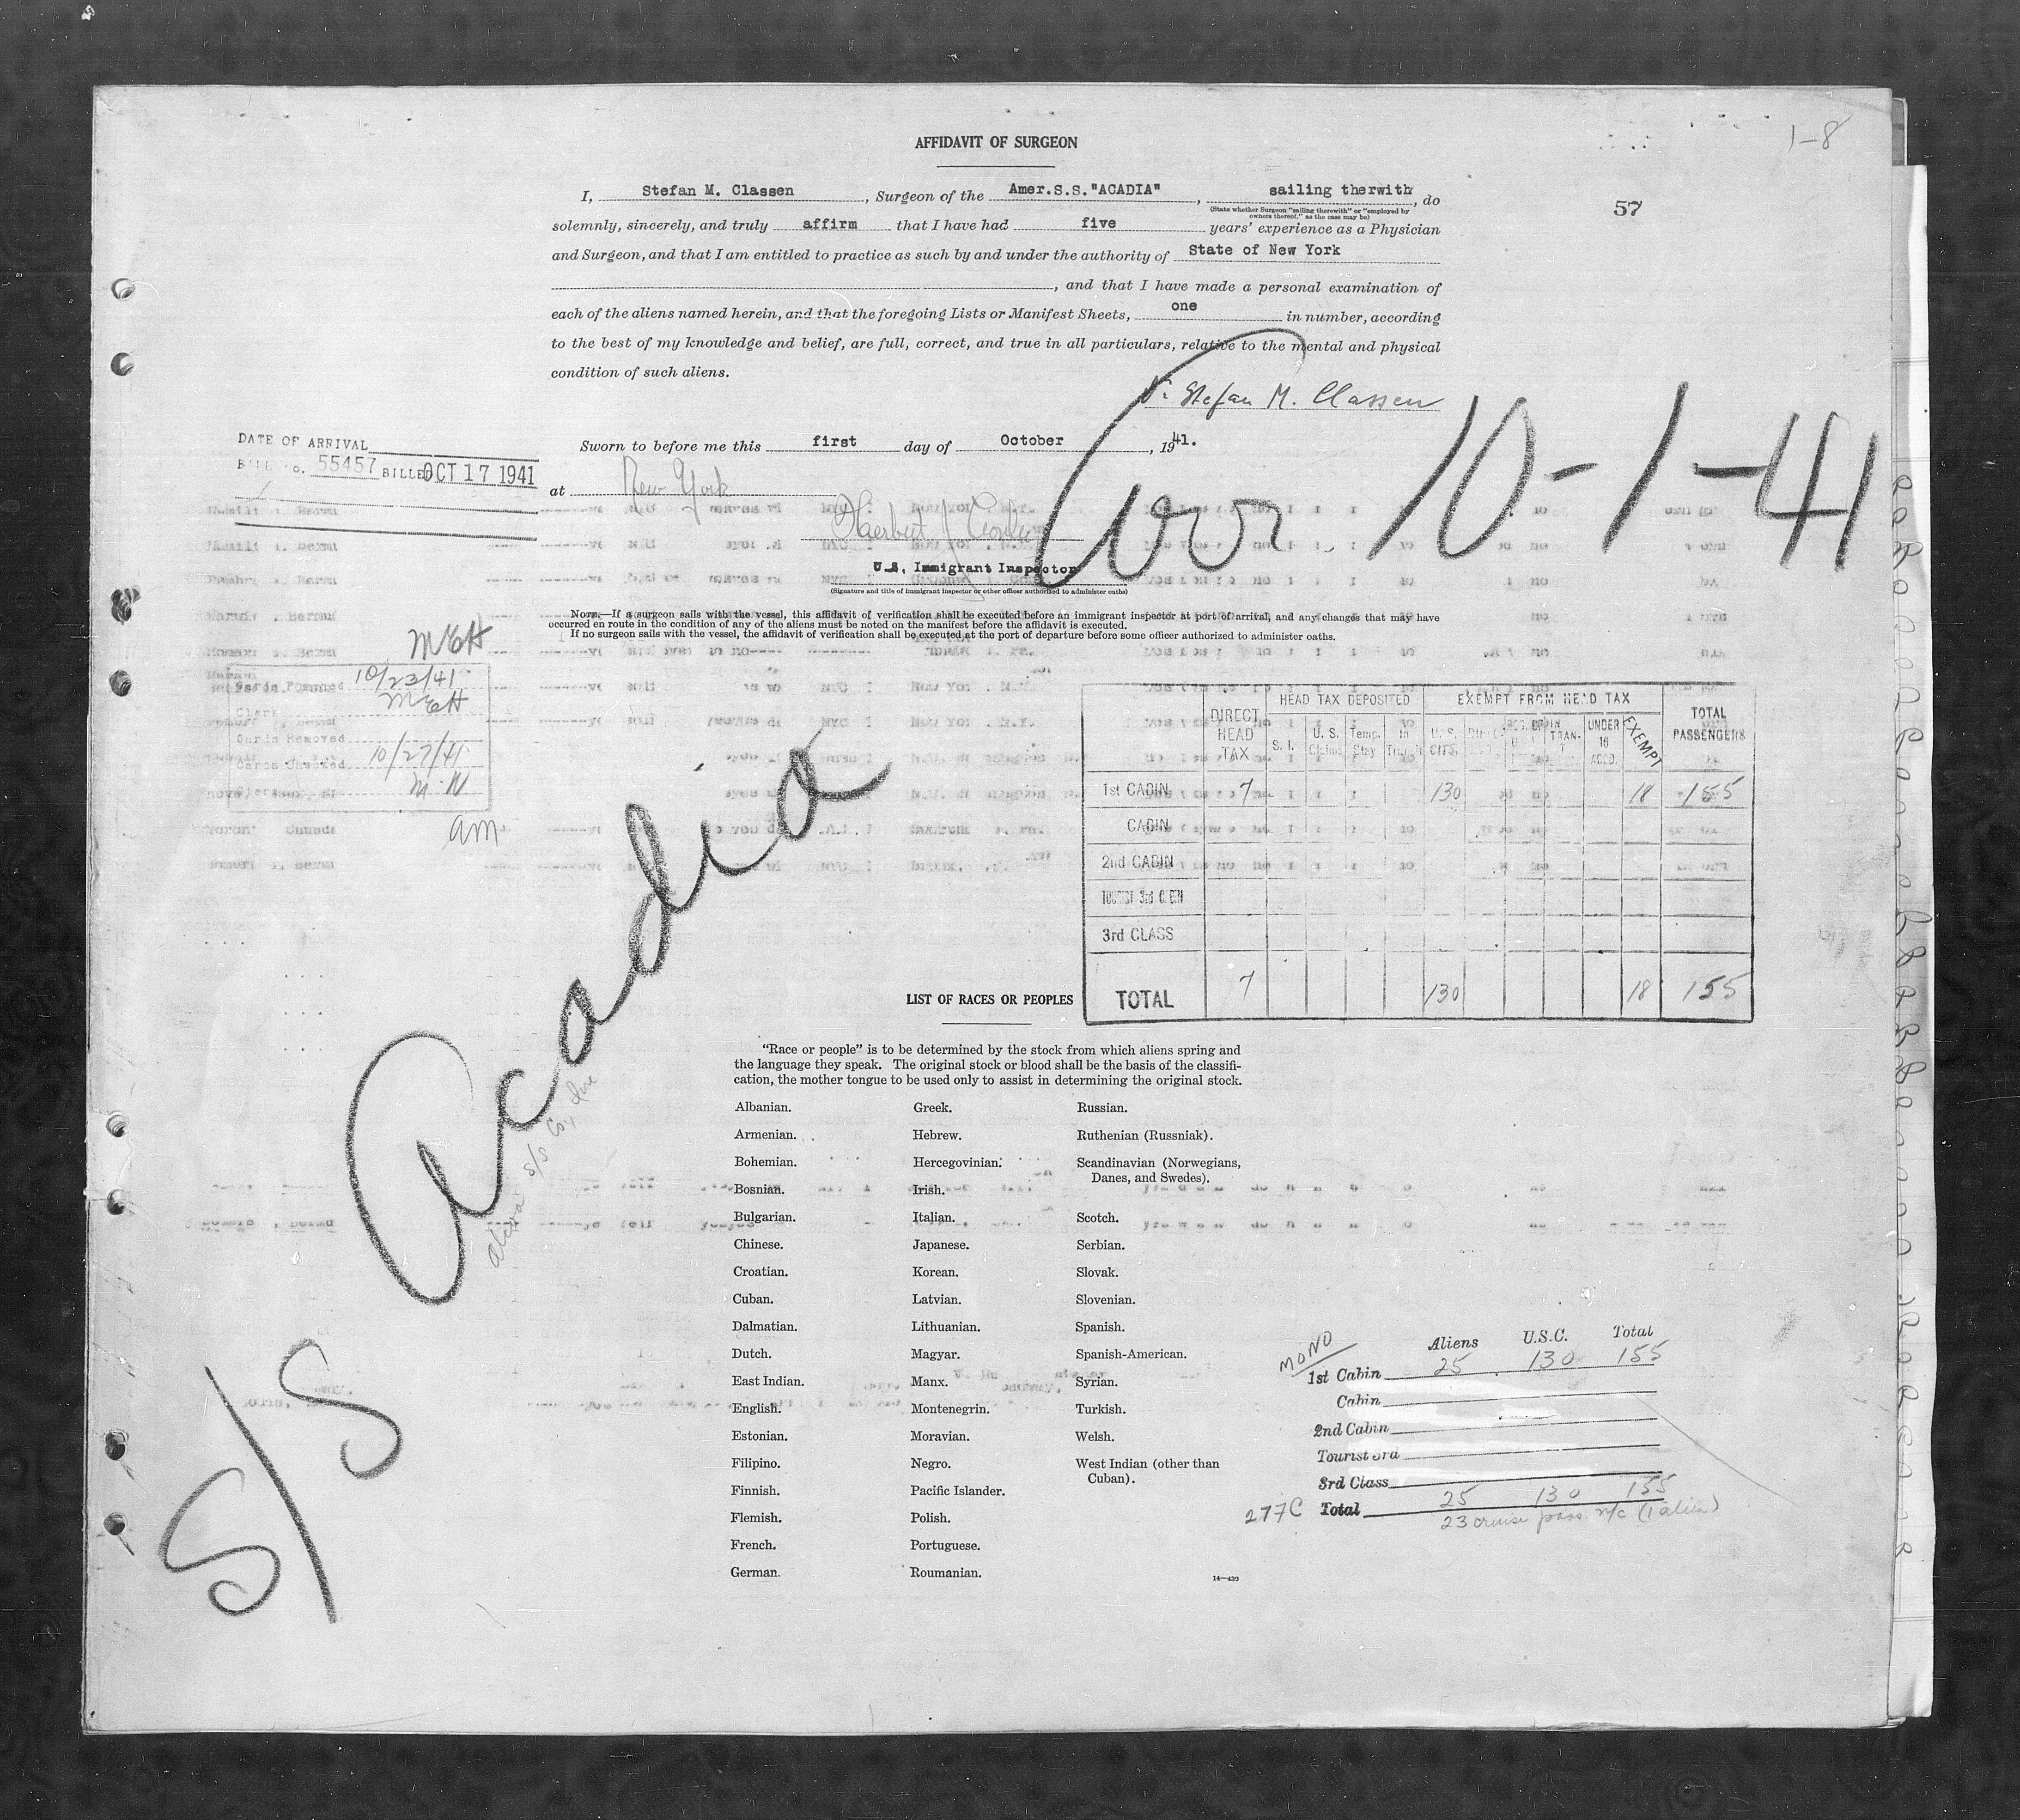 1-8
AFFIDAVIT OF SURGEON
57
I, Stefan M. Classen, Surgeon of the Amer.S.S."ACADIA", sailing therwith, do
(State whether Surgeon "sailing therewith" or "employed by
owners thereof," as the case may be)
solemnly, sincerely, and truly affirm that I have had five years' experience as a Physician
and Surgeon, and that I am entitled to practice as such by and under the authority of State of New York
, and that I have made a personal examination of
each of the aliens named herein, and that the foregoing Lists or Manifest Sheets, one in number, according
to the best of my knowledge and belief, are full, correct, and true in all particulars, relative to the mental and physical
condition of such aliens.
Stefan M. Classen
Sworn to before me this first day of October, 1941.
at New York
Herbert
U.S. Immigrant Inspector
(Signature and title of immigrant inspector or other officer authorized to administer oaths)
Arr. 10-1-41
DATE OF ARRIVAL
BILL No. 55457 BILLED OCT 17 1941
NOTE.—If a surgeon sails with the vessel, this affidavit of verification shall be executed before an immigrant inspector at port of arrival, and any changes that may have
occurred en route in the condition of any of the aliens must be noted on the manifest before the affidavit is executed.
If no surgeon sails with the vessel, the affidavit of verification shall be executed at the port of departure before some officer authorized to administer oaths.
MEH
10/23/41
Clerk MEH
Cards Removed
Cards Checked 10/27/41
Clerk M.N
am
S/S Acadia
Alcoa S/S Co., Inc
DIRECT HEAD TAX
HEAD TAX DEPOSITED
S. I.
U. S. Claims
Temp. Stay
In Transit
EXEMPT FROM HEAD TAX
U. S. CITS.
UNDER 16 ACCD.
EXEMPT
TOTAL PASSENGERS
1st CABIN 7 130 18 155
CABIN
2nd CABIN
TOURIST 3rd CABIN
3rd CLASS
TOTAL 7 130 18 155
LIST OF RACES OR PEOPLES
"Race or people" is to be determined by the stock from which aliens spring and
the language they speak. The original stock or blood shall be the basis of the classifi-
cation, the mother tongue to be used only to assist in determining the original stock.
Albanian.
Armenian.
Bohemian.
Bosnian.
Bulgarian.
Chinese.
Croatian.
Cuban.
Dalmatian.
Dutch.
East Indian.
English.
Estonian.
Filipino.
Finnish.
Flemish.
French.
German.
Greek.
Hebrew.
Hercegovinian.
Irish.
Italian.
Japanese.
Korean.
Latvian.
Lithuanian.
Magyar.
Manx.
Montenegrin.
Moravian.
Negro.
Pacific Islander.
Polish.
Portuguese.
Roumanian.
Russian.
Ruthenian (Russniak).
Scandinavian (Norwegians,
Danes, and Swedes).
Scotch.
Serbian.
Slovak.
Slovenian.
Spanish.
Spanish-American.
Syrian.
Turkish.
Welsh.
West Indian (other than
Cuban).
14—439
MONO
Aliens U.S.C. Total
1st Cabin 25 130 155
Cabin
2nd Cabin
Tourist 3rd
3rd Class
277C Total 25 130 155
23 cruise pass. n/c (1 alien)